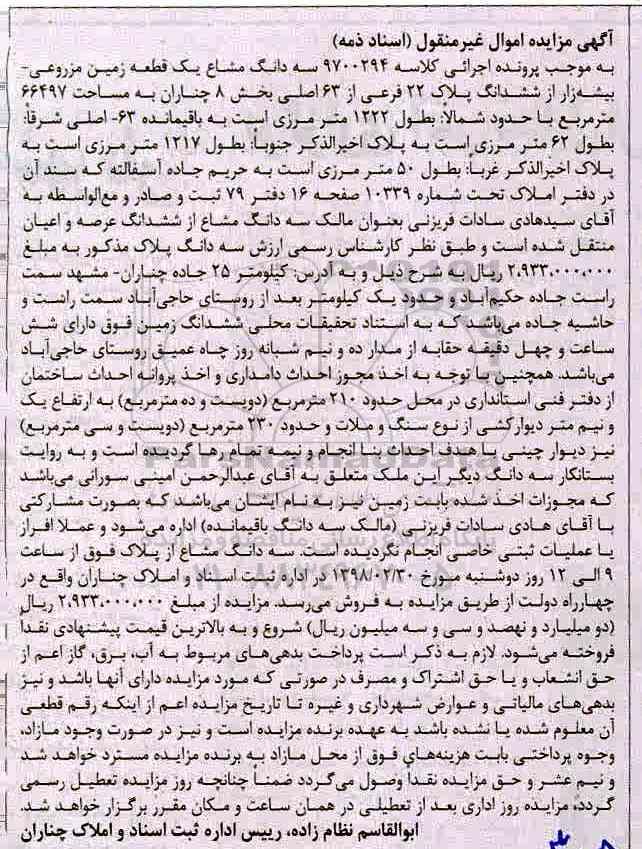 آگهی مزایده اموال غیرمنقول (اسناد ذمه)
به موجب پرونده اجرائی کلاسه ۹۷۰۰۲۹۴ سه دانگ مشاع یک قطعه زمین مزروعی-
بیشه‌زار از ششدانگ پلاک ۲۲ فرعی از ۶۳ اصلی بخش ۸ چناران به مساحت ۶۶۴۹۷
مترمربع با حدود شمالاً: بطول ۱۲۲۲ متر مرزی است به باقیمانده ۶۳- اصلی شرقاً:
بطول ۶۲ متر مرزی است به پلاک اخیرالذکر جنوباً: بطول ۱۲۱۷ متر مرزی است به
پلاک اخیرالذکر غرباً: بطول ۵۰ متر مرزی است به حریم جاده آسفالته که سند آن
در دفتر املاک تحت شماره ۱۰۳۳۹ صفحه ۱۶ دفتر ۷۹ ثبت و صادر و مع‌الواسطه به
آقای سیدهادی سادات فریزنی بعنوان مالک سه دانگ مشاع از ششدانگ عرصه و اعیان
منتقل شده است و طبق نظر کارشناس رسمی ارزش سه دانگ پلاک مذکور به مبلغ
۲,۹۳۳,۰۰۰,۰۰۰ ریال به شرح ذیل و به آدرس: کیلومتر ۲۵ جاده چناران- مشهد سمت
راست جاده حکیم‌آباد و حدود یک کیلومتر بعد از روستای حاجی‌آباد سمت راست و
حاشیه جاده می‌باشد که به استناد تحقیقات محلی ششدانگ زمین فوق دارای شش
ساعت و چهل دقیقه حقابه از مدار ده و نیم شبانه روز چاه عمیق روستای حاجی‌آباد
می‌باشد. همچنین با توجه به اخذ مجوز احداث دامداری و اخذ پروانه احداث ساختمان
از دفتر فنی استانداری در محل حدود ۲۱۰ مترمربع (دویست و ده مترمربع) به ارتفاع یک
و نیم متر دیوارکشی از نوع سنگ و ملات و حدود ۲۳۰ مترمربع (دویست و سی مترمربع)
نیز دیوار چینی با هدف احداث بنا انجام و نیمه تمام رها گردیده است و به روایت
بستانکار سه دانگ دیگر این ملک متعلق به آقای عبدالرحمن امینی سورانی می‌باشد
که مجوزات اخذ شده بابت زمین نیز به نام ایشان می‌باشد که بصورت مشارکتی
با آقای هادی سادات فریزنی (مالک سه دانگ باقیمانده) اداره می‌شود و عملا افراز
یا عملیات ثبتی خاصی انجام نگردیده است. سه دانگ مشاع از پلاک فوق از ساعت
۹ الی ۱۲ روز دوشنبه مورخ ۱۳۹۸/۰۲/۳۰ در اداره ثبت اسناد و املاک چناران واقع در
چهارراه دولت از طریق مزایده به فروش می‌رسد. مزایده از مبلغ ۲,۹۳۳,۰۰۰,۰۰۰ ریال
(دو میلیارد و نهصد و سی و سه میلیون ریال) شروع و به بالاترین قیمت پیشنهادی نقداً
فروخته می‌شود. لازم به ذکر است پرداخت بدهی‌های مربوط به آب، برق، گاز اعم از
حق انشعاب و یا حق اشتراک و مصرف در صورتی که مورد مزایده دارای آنها باشد و نیز
بدهی‌های مالیاتی و عوارض شهرداری و غیره تا تاریخ مزایده اعم از اینکه رقم قطعی
آن معلوم شده یا نشده باشد به عهده برنده مزایده است و نیز در صورت وجود مازاد،
وجوه پرداختی بابت هزینه‌های فوق از محل مازاد به برنده مزایده مسترد خواهد شد
و نیم عشر و حق مزایده نقداً وصول می‌گردد ضمناً چنانچه روز مزایده تعطیل رسمی
گردد، مزایده روز اداری بعد از تعطیلی در همان ساعت و مکان مقرر برگزار خواهد شد.
ابوالقاسم نظام زاده، رییس اداره ثبت اسناد و املاک چناران